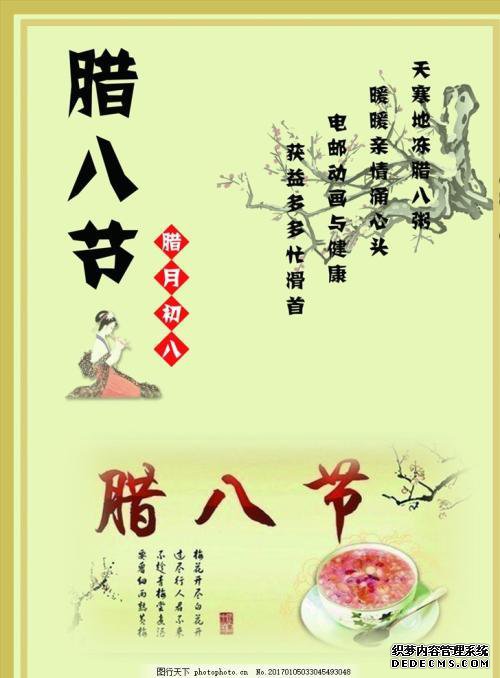 腊八节
腊月初八
天寒地冻腊八粥
暖暖亲情涌心头
电邮动画与健康
获益多多忙滑首
腊八节
梅花开尽白花开
过尽行人君不来
不趁青梅尝煮酒
要看细雨熟黄梅
织梦内容管理系统
DEDECMS.COM
图行天下 photophoto.cn No.20170105033045493048